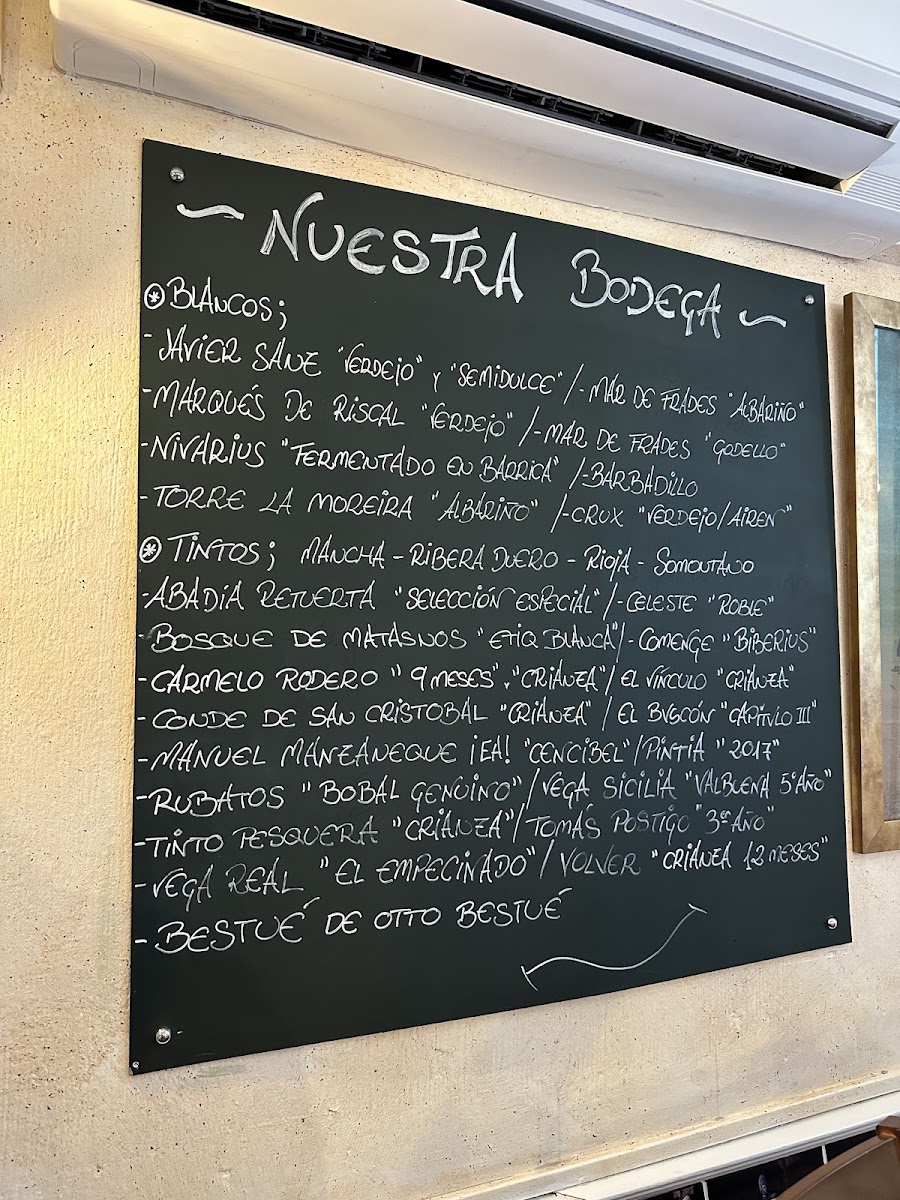 ~ NUESTRA BODEGA ~
⊛ BLANCOS;
- JAVIER SANZ "VERDEJO" Y "SEMIDULCE" / - MAR DE FRADES "ALBARIÑO"
- MARQUÉS DE RISCAL "VERDEJO" / - MAR DE FRADES "GODELLO"
- NIVARIUS "FERMENTADO EN BARRICA" / - BARBADILLO
- TORRE LA MOREIRA "ALBARIÑO" / - CRUX "VERDEJO/AIREN"
⊛ TINTOS; MANCHA - RIBERA DUERO - RIOJA - SOMONTANO
- ABADÍA RETUERTA "SELECCIÓN ESPECIAL" / - CELESTE "ROBLE"
- BOSQUE DE MATASNOS "ETIQ BLANCA" / - COMENGE "BIBERIUS"
- CARMELO RODERO "9 MESES". "CRIANZA" / EL VÍNCULO "CRIANZA"
- CONDE DE SAN CRISTOBAL "CRIANZA" / EL BUSCÓN "CAPITULO III"
- MANUEL MANZANEQUE ¡EA! "CENCIBEL" / PINTIA "2017"
- RUBATOS "BOBAL GENUINO" / VEGA SICILIA "VALBUENA 5º AÑO"
- TINTO PESQUERA "CRIANZA" / TOMÁS POSTIGO "3er AÑO"
- VEGA REAL "EL EMPECINADO" / VOLVER "CRIANZA 12 MESES"
- BESTUÉ DE OTTO BESTUÉ